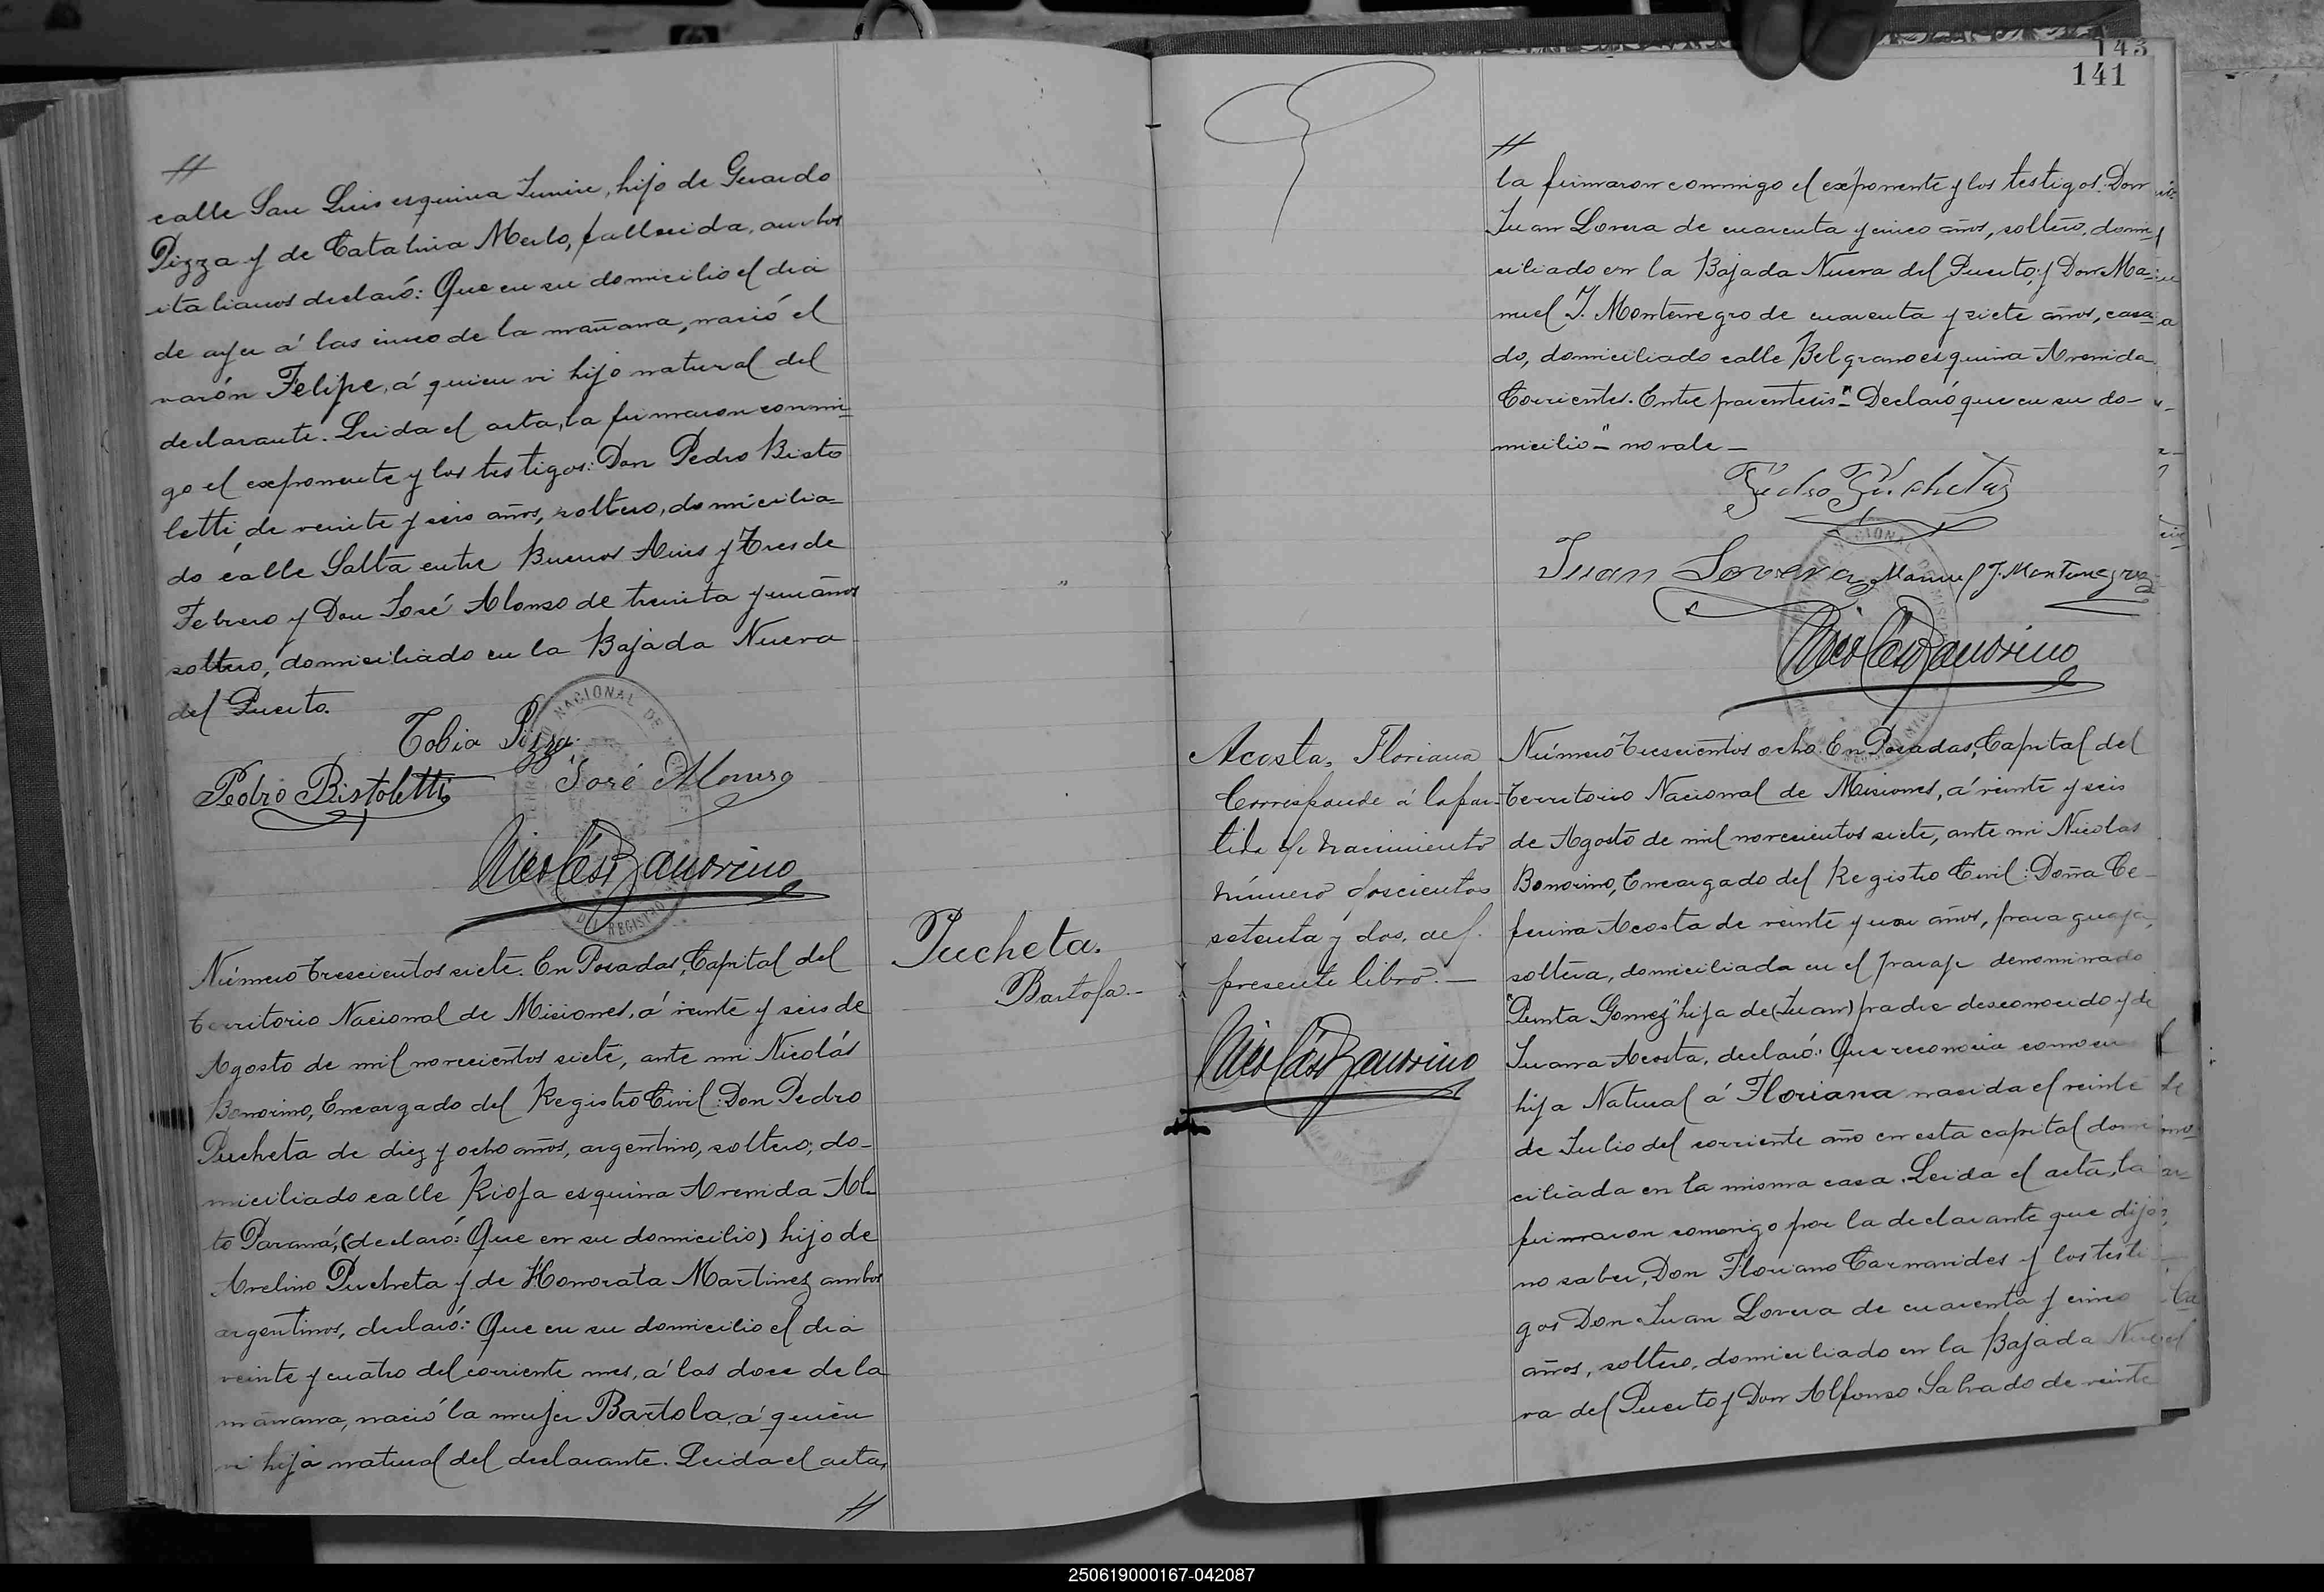 //
calle San Luis esquina Junin, hijo de Gerardo
Pizza y de Catalina Merlo, fallecida, ambos
italianos declaró: Que en su domicilio el dia
de ayer á las cinco de la mañana, nació el
varón Felipe, á quien vi hijo natural del
declarante. Leida el acta, la firmaron conmi-
go el exponente y los testigos: Don Pedro Bisto
letti, de veinte y seis años, soltero, domicilia-
do calle Salta entre Buenos Aires y Tres de
Febrero y Don José Alonso de treinta y un años
soltero, domiciliado en la Bajada Nueva
del Puerto.
Tobia Pizza
Pedro Bistoletti José Alonso
Nicolás Bonorino
Número trescientos siete. En Posadas, Capital del
Territorio Nacional de Misiones, á veinte y seis de
Agosto de mil novecientos siete, ante mi Nicolás
Bonorino, Encargado del Registro Civil: Don Pedro
Pucheta de diez y ocho años, argentino, soltero, do-
miciliado calle Rioja esquina Avenida Al-
to Paraná, (declaró: Que en su domicilio) hijo de
Avelino Pucheta y de Honorata Martinez ambos
argentinos, declaró: Que en su domicilio el dia
veinte y cuatro del corriente mes, á las doce de la
mañana, nació la mujer Bartola, á quien
vi hija natural del declarante. Leida el acta,
//
Pucheta.
Bartola.-
143
141
//
la firmaron conmigo el exponente y los testigos: Don
Juan Lovera de cuarenta y cinco años, soltero, domi-
ciliado en la Bajada Nueva del Puerto, y Don Ma-
nuel J. Montenegro de cuarenta y siete años, casa-
do, domiciliado calle Belgrano esquina Avenida
Corrientes. Entre parentesis "Declaró que en su do-
micilio" no vale-
Pedro Pucheta
Juan Lovera Manuel J. Montenegro
Nicolás Bonorino
Acosta, Floriana
Corresponde á la par-
tida de nacimiento
número doscientos
setenta y dos, del
presente libro.-
Nicolás Bonorino
Número trescientos ocho. En Posadas, Capital del
Territorio Nacional de Misiones, á veinte y seis
de Agosto de mil novecientos siete, ante mi Nicolas
Bonorino, Encargado del Registro Civil: Doña Ce-
ferina Acosta de veinte y un años, paraguaya,
soltera, domiciliada en el paraje denominado
"Punta Gomez" hija de (Juan) padre desconocido y de
Juana Acosta, declaró: Que reconocia como su
hija Natural á Floriana nacida el veinte
de Julio del corriente año en esta capital domi
ciliada en la misma casa. Leida el acta, la
firmaron conmigo por la declarante que dijo
no saber, Don Floriano Carnavides y los testi
gos Don Juan Lovera de cuarenta y cinco
años, soltero, domiciliado en la Bajada Nue
va del Puerto y Don Alfonso Salvado de veinte
250619000167-042087